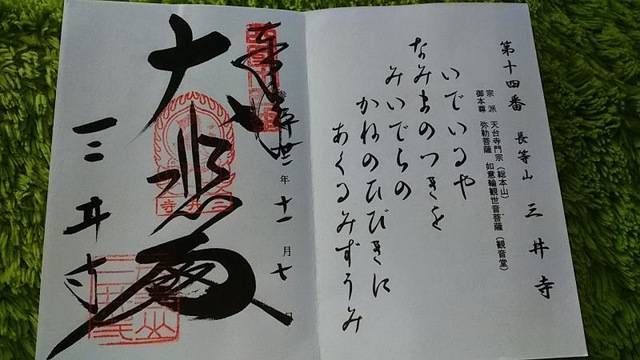 第十四番 長等山 三井寺
宗派 天台寺門宗(総本山)
御本尊 弥勒菩薩 如意輪観世音菩薩(観音堂)
いでいるや
なみまのつきを
みいでらの
かねのひびきに
あくるみずうみ
奉拝
年十一月七日
大悲殿
三井寺